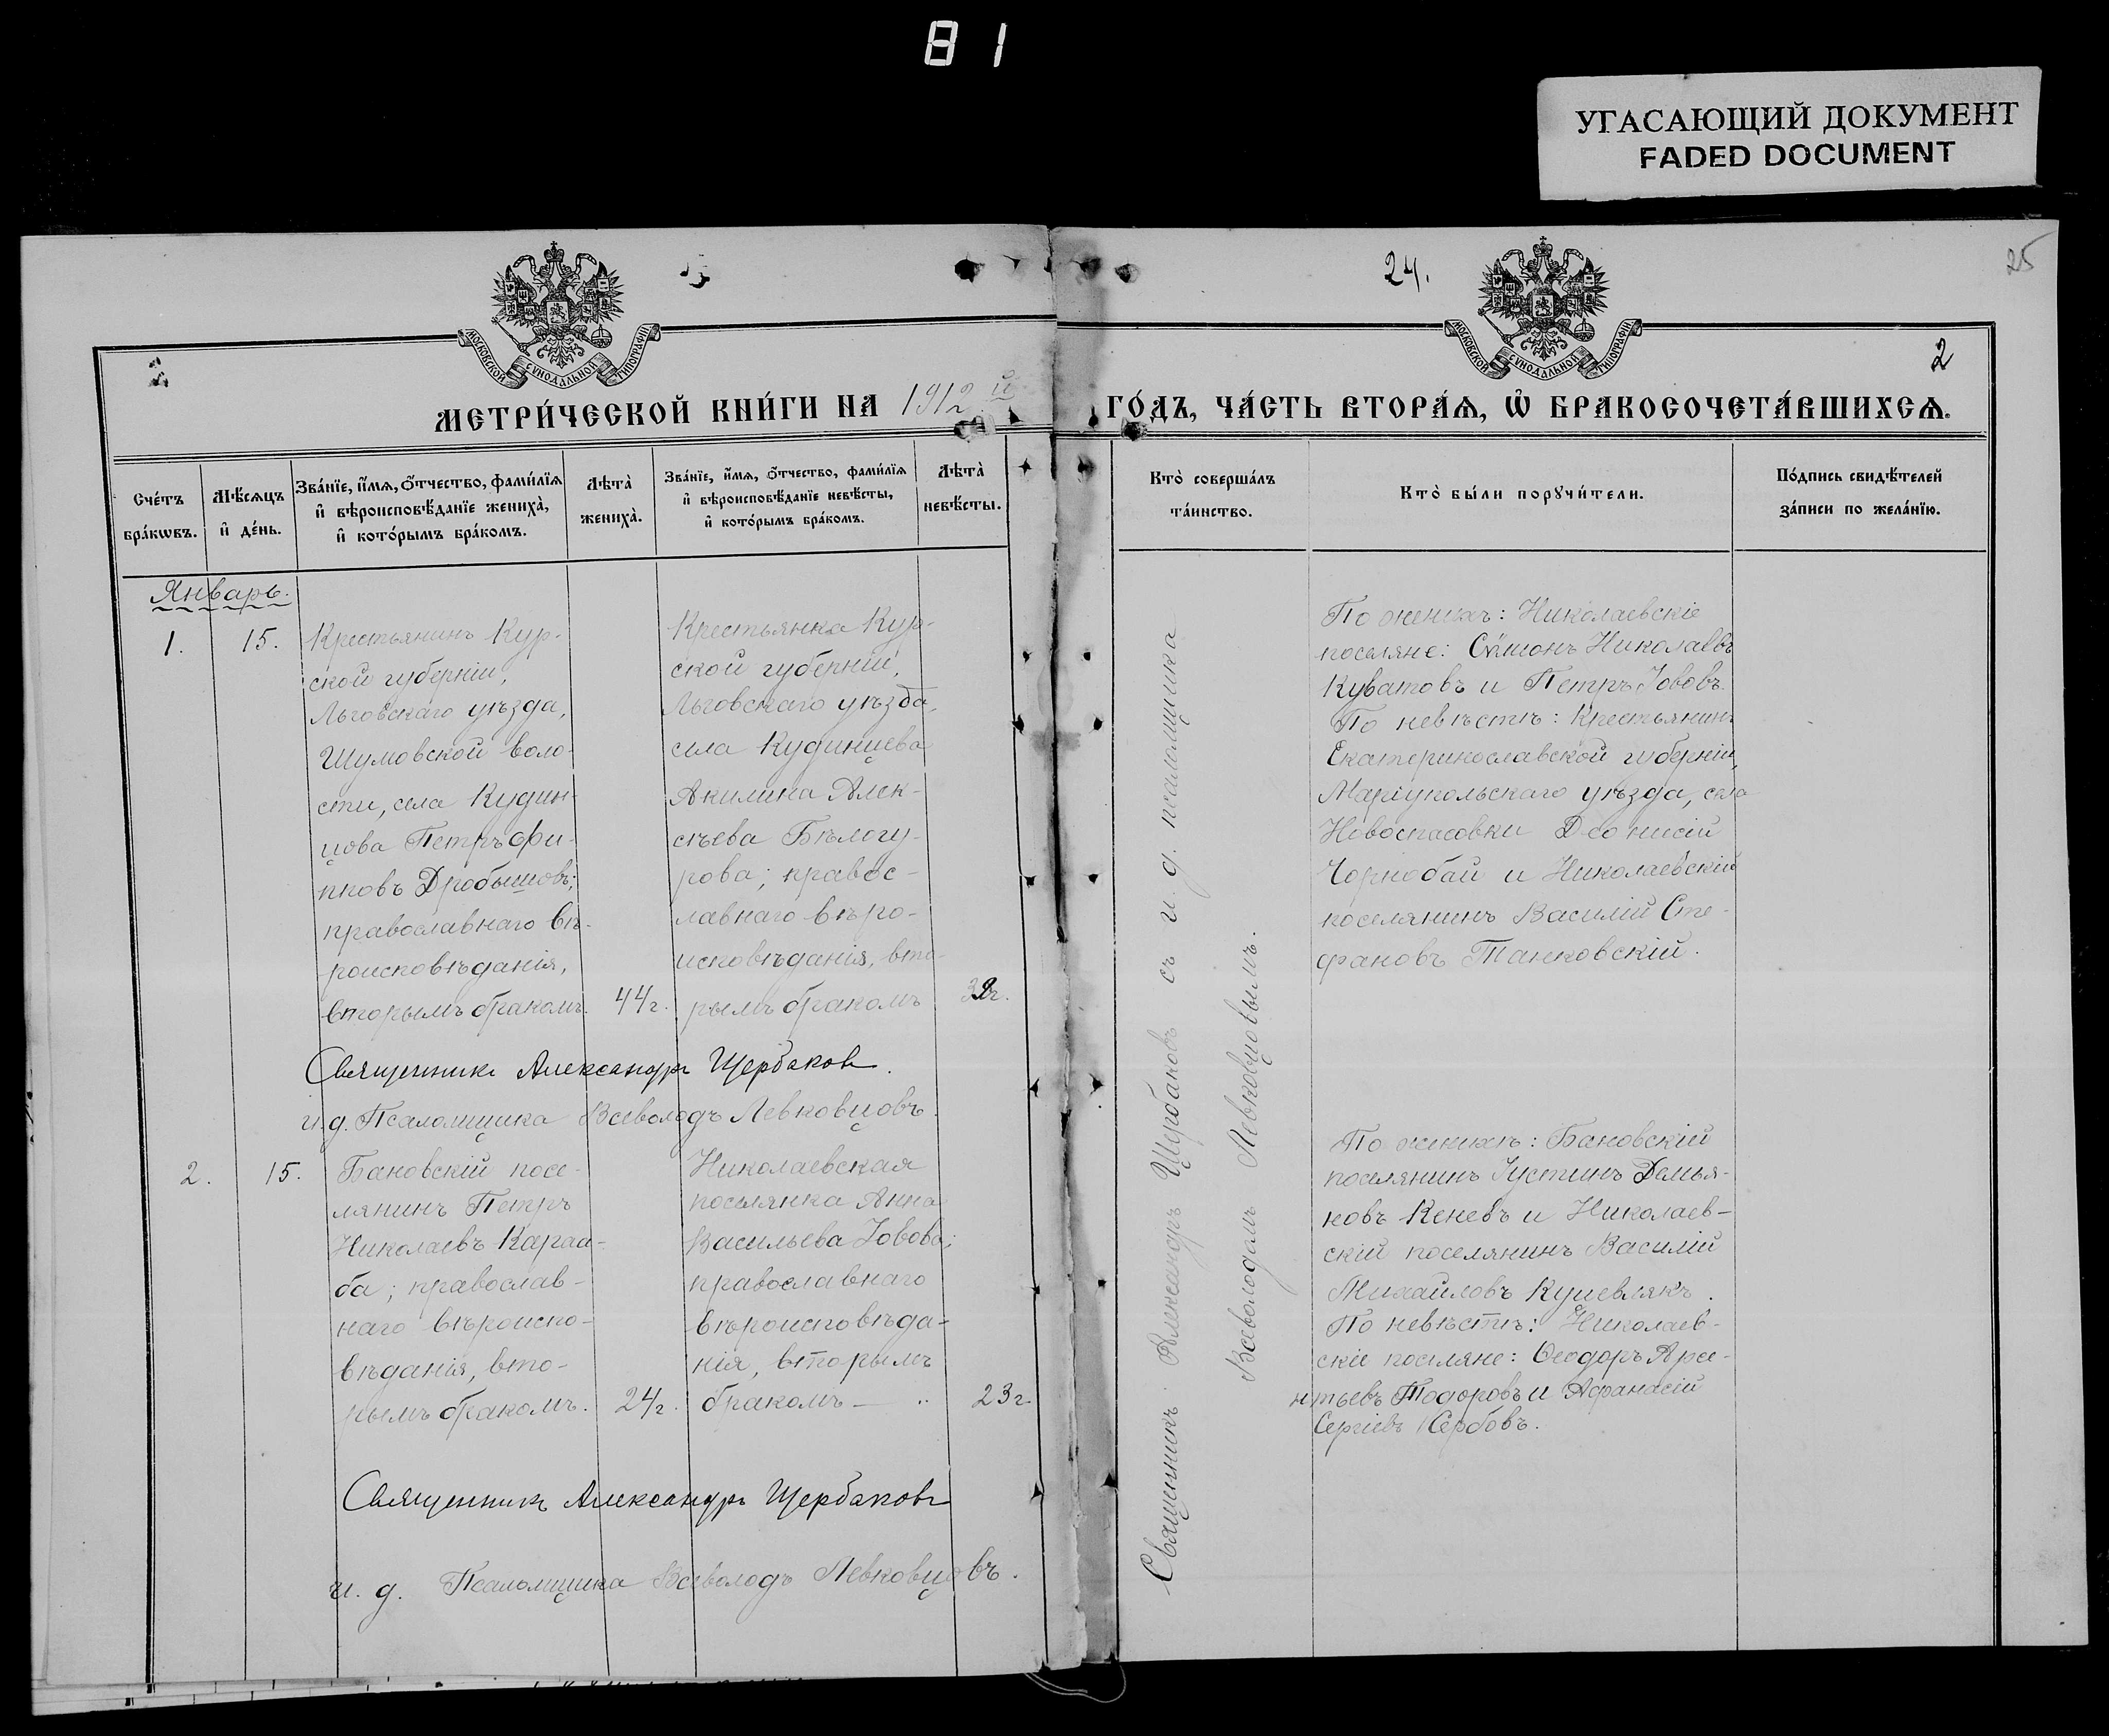 81
УГАСАЮЩИЙ ДОКУМЕНТ
FADED DOCUMENT
24.
25
МОСКОВСКОЙ СѴНОДАЛЬНОЙ ТИПОГРАФІИ
МОСКОВСКОЙ СѴНОДАЛЬНОЙ ТИПОГРАФІИ
2
МЕТРИ́ЧЕСКОЙ КНИ́ГИ НА 1912 й
ГО́ДЪ, ЧА́СТЬ ВТОРА́Ѧ, Ѡ҆ БРАКОСОЧЕТА́ВШИХСѦ.
Сче́тъ
бра́кѡвъ.
Мѣ́сяцъ
и҆ де́нь.
Зва́нїе, и҆́мя, ѻ҆́тчество, фами́лїя
и҆ вѣроисповѣ́данїе жениха̀,
и҆ кото́рымъ бра́комъ.
Лѣта̀
жениха̀.
Зва́нїе, и҆́мя, ѻ҆́тчество, фами́лїя
и҆ вѣроисповѣ́данїе невѣ́сты,
и҆ кото́рымъ бра́комъ.
Лѣта̀
невѣ́сты.
Кто̀ соверша́лъ
та́инство.
Кто̀ бы́ли порꙋчи́тели.
По́дпись свидѣ́телей
за́писи по жела́нїю.
Январь.
1.
15.
Крестьянинъ Кур-
ской губерніи,
Льговскаго уѣзда,
Шумовской воло-
сти, села Кудин-
цова Петръ Фи-
повъ Дробышовъ;
православнаго вѣ-
роисповѣданія,
вторымъ бракомъ.
44 г.
Крестьянка Кур-
ской губерніи,
Льговскаго уѣзда,
села Кудинцева
Акилина Алек-
сѣева Бѣлогу-
рова; правос-
лавнаго вѣро-
исповѣданія, вто-
рымъ бракомъ
г.
Священникъ Александръ Щербаковъ.
и.д. Псаломщика Всеволодъ Левковцовъ.
По женихѣ: Николаевскіе
поселяне: Сѵмеонъ Николаевъ
Куватовъ и Петръ Іововъ.
По невѣстѣ: Крестьянинъ
Екатеринославской губерніи,
Маріупольскаго уѣзда, села
Новоспасовки Діонисій
Чорнобай и Николаевскій
поселянинъ Василій Сте-
фановъ Танковскій.
2.
15.
Бановскій посе-
лянинъ Петръ
Николаевъ Караа-
ба; православ-
наго вѣроиспо-
вѣданія, вто-
рымъ бракомъ.
24 г.
Николаевская
поселянка Анна
Васильева Іовова;
православнаго
вѣроисповѣда-
нія, вторымъ
бракомъ —
23 г.
Священникъ Александръ Щербаковъ
и. д. Псаломщика Всеволодъ Левковцовъ.
По женихѣ: Бановскій
поселянинъ Іустинъ Демья-
новъ Кеневъ и Николаев-
скій поселянинъ Василій
Михайловъ Кушевлякъ.
По невѣстѣ: Николаев-
скіе поселяне: Ѳеодоръ Арсе-
нтьевъ Тодоровъ и Афанасій
Сергіевъ Сербовъ.
Священникъ Александръ Щербаковъ съ и. д. псаломщика
Всеволодомъ Левковцовымъ.